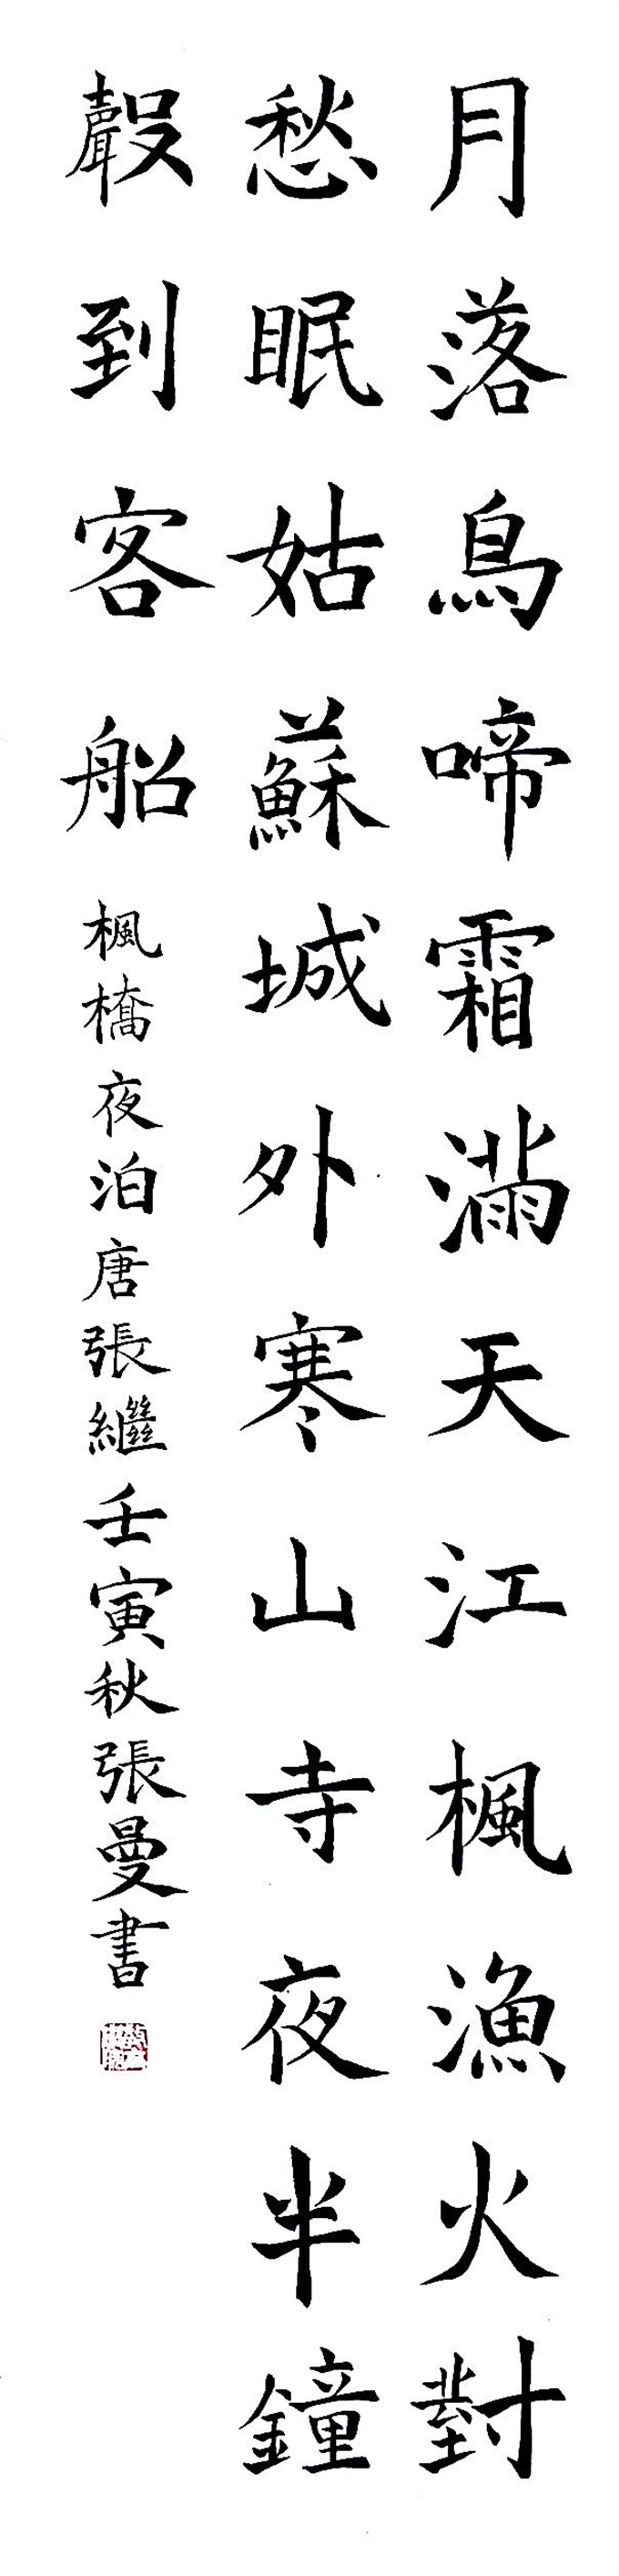 月落鳥啼霜滿天江楓漁火對
愁眠姑蘇城外寒山寺夜半鐘
聲到客船 楓橋夜泊唐張繼壬寅秋張曼書